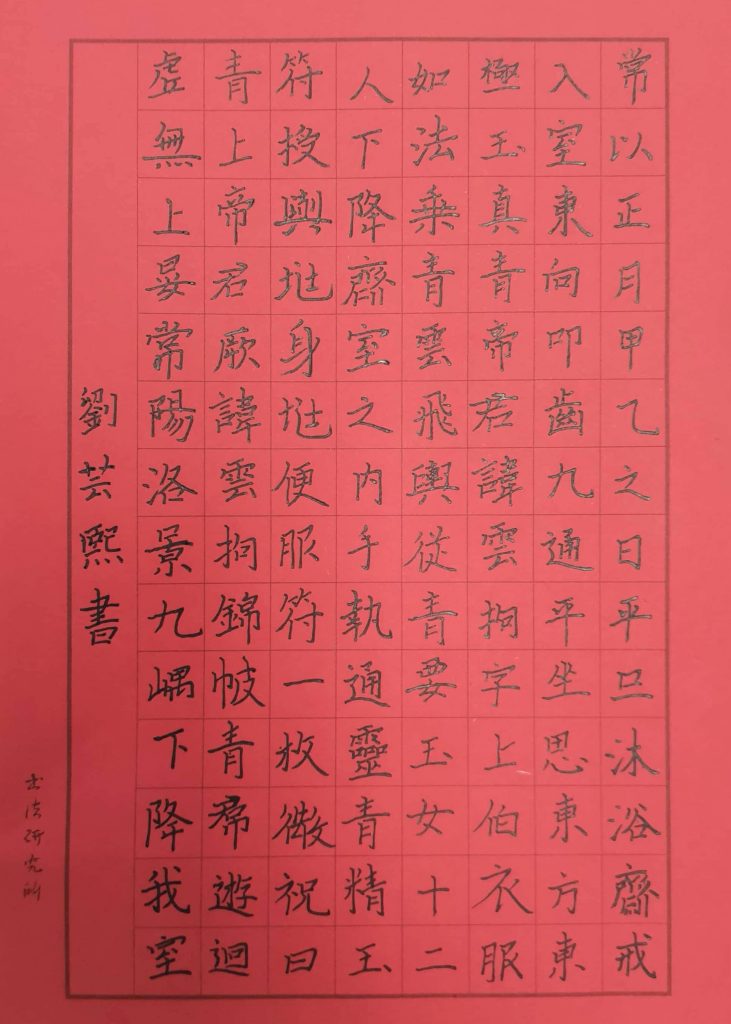 常以正月甲乙之日平旦沐浴齋戒
入室東向叩齒九通平坐思東方東
極玉真青帝君諱雲拘字上伯衣服
如法乘青雲飛輿從青要玉女十二
人下降齋室之内手執通靈青精玉
符授與兆身兆便服符一枚微祝曰
青上帝君厥諱雲拘錦帔青帬遊迴
虛無上晏常陽洛景九嵎下降我室
劉芸熙書
书法研究所